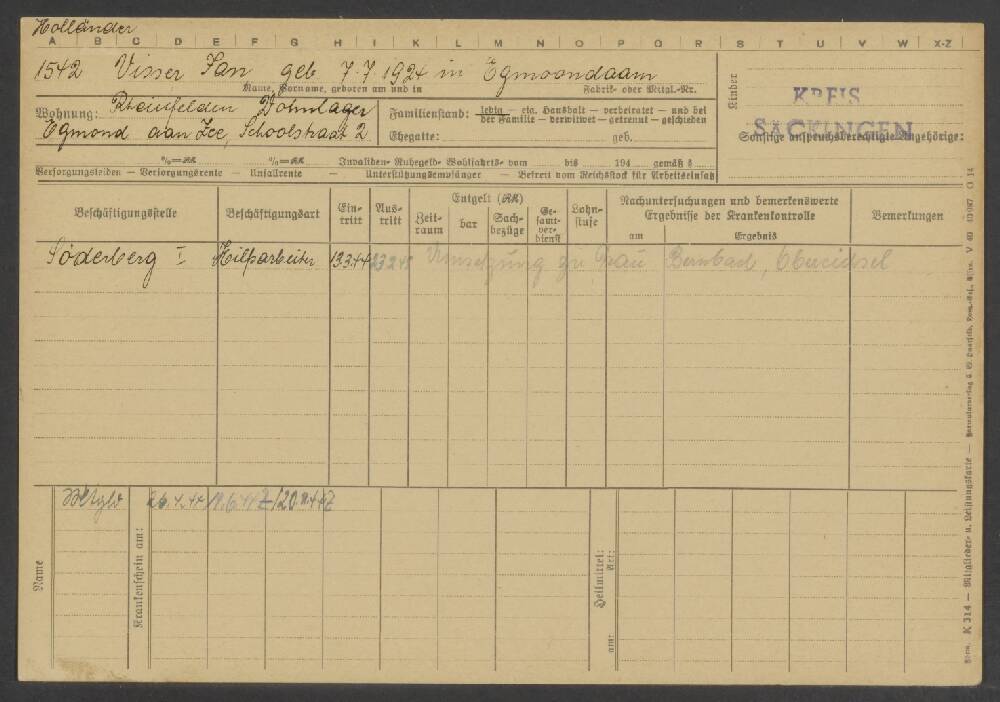 Holländer
A B C D E F G H I K L M N O P Q R S T U V W X-Z
1542 Visser Jan geb 7.7.1924 in Egmoondaam
Name, Vorname, geboren am und in Fabrik- oder Mitgl.-Nr.
Wohnung: Rheinfelden Wohnlager
Egmond aan Zee, Schoolstraat 2
Familienstand: ledig — eig. Haushalt — verheiratet — und bei
der Familie — verwitwet — getrennt — geschieden
Ehegatte: geb.
Kinder
KREIS
SÄCKINGEN
Sonstige anspruchsberechtigte Angehörige:
%=RK %=RK Invaliden- Ruhegeld- Wohlfahrts- vom bis 194 gemäß §
Versorgungsleiden — Versorgungsrente — Unfallrente — Unterstützungsempfänger — Befreit vom Reichsstock für Arbeitseinsatz
Beschäftigungsstelle Beschäftigungsart Ein-tritt Aus-tritt Entgelt (RK) Zeit-raum bar Sach-bezüge Ge-samt-ver-dienst Lohn-stufe Nachuntersuchungen und bemerkenswerte Ergebnisse der Krankenkontrolle am Ergebnis Bemerkungen
Söderberg I Hilfsarbeiter 13.3.44 Umsetzung zu Bau Bernbad,
Name
Krankenschein am:
Heilmittel: Art: am:
K 314 — Mitglieder- u. Leistungskarte —